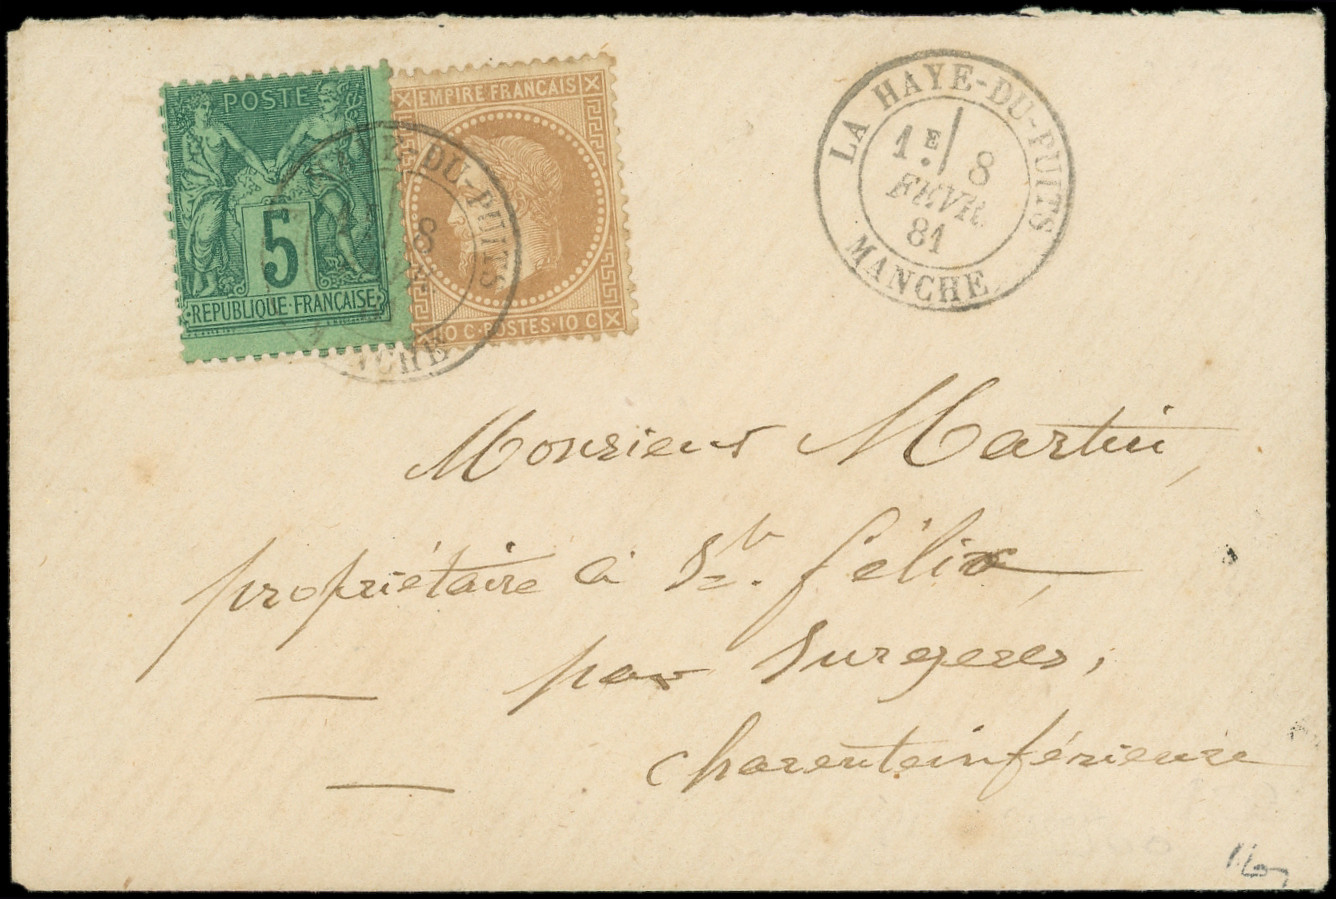 POSTE
5
REPUBLIQUE FRANÇAISE
EMPIRE FRANCAIS
10 C · POSTES · 10 C
HAYE-DU-PUITS
8
MANCHE
LA HAYE-DU-PUITS
1E 8
FEVR.
81
MANCHE
Monsieur Martin,
propriétaire à St. félix,
par Surgeres,
charente inférieure